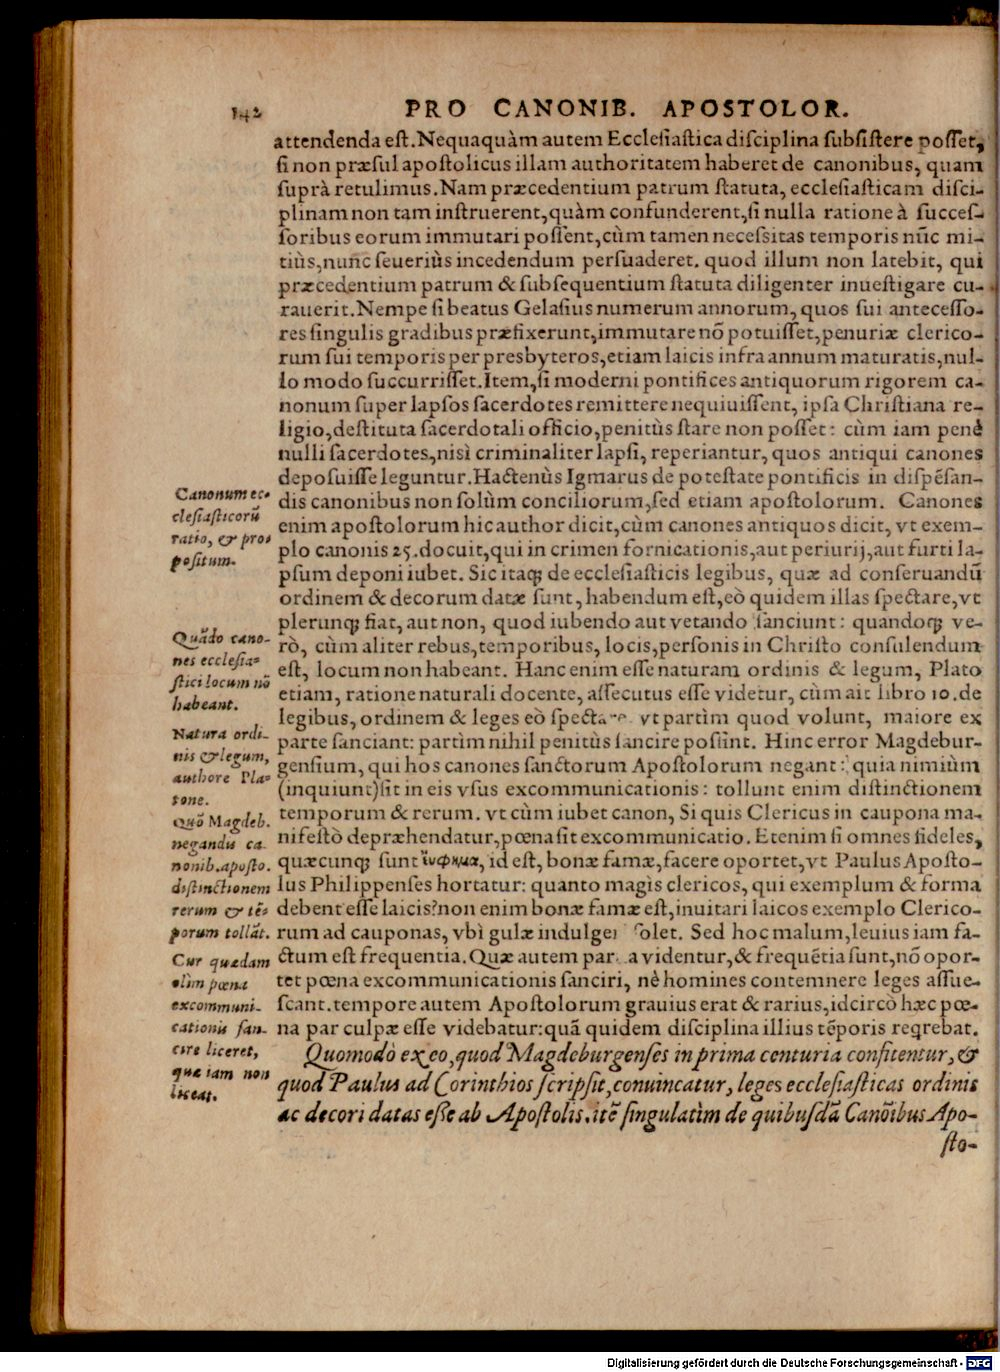 142 PRO CANONIB. APOSTOLOR.
attendenda eſt. Nequaquàm autem Eccleſiaſtica diſciplina ſubſiſtere poſſet,
ſi non præſul apoſtolicus illam authoritatem haberet de canonibus, quam
ſuprà retulimus. Nam præcedentium patrum ſtatuta, eccleſiaſticam diſci-
plinam non tam inſtruerent, quàm confunderent, ſi nulla ratione à ſucceſ-
ſoribus eorum immutari poſſent, cùm tamen neceſsitas temporis nūc mi-
tiùs, nunc ſeueriùs incedendum perſuaderet. quod illum non latebit, qui
præcedentium patrum & ſubſequentium ſtatuta diligenter inueſtigare cu-
rauerit. Nempe ſi beatus Gelaſius numerum annorum, quos ſui anteceſſo-
res ſingulis gradibus præfixerunt, immutare nō potuiſſet, penuriæ clerico-
rum ſui temporis per presbyteros, etiam laicis infra annum maturatis, nul-
lo modo ſuccurriſſet. Item, ſi moderni pontifices antiquorum rigorem ca-
nonum ſuper lapſos ſacerdotes remittere nequiuiſſent, ipſa Chriſtiana re-
ligio, deſtituta ſacerdotali officio, penitùs ſtare non poſſet: cùm iam penè
nulli ſacerdotes, niſi criminaliter lapſi, reperiantur, quos antiqui canones
depoſuiſſe leguntur. Hactenùs Igmarus de poteſtate pontificis in diſpēſan-
dis canonibus non ſolùm conciliorum, ſed etiam apoſtolorum. Canones
enim apoſtolorum hic author dicit, cùm canones antiquos dicit, vt exem-
plo canonis 25. docuit, qui in crimen fornicationis, aut periurij, aut furti la-
pſum deponi iubet. Sic itaq; de eccleſiaſticis legibus, quæ ad conſeruandū
ordinem & decorum datæ ſunt, habendum eſt, eò quidem illas ſpectare, vt
plerunq; fiat, aut non, quod iubendo aut vetando ſanciunt: quandoq; ve-
rò, cùm aliter rebus, temporibus, locis, perſonis in Chriſto conſulendum
eſt, locum non habeant. Hanc enim eſſe naturam ordinis & legum, Plato
etiam, ratione naturali docente, aſſecutus eſſe videtur, cùm ait libro 10. de
legibus, ordinem & leges eò vt partìm quod volunt, maiore ex
parte ſanciant: partìm nihil penitùs ſancire poſsint. Hinc error Magdebur-
genſium, qui hos canones ſanctorum Apoſtolorum negant: quia nimiùm
(inquiunt) ſit in eis vſus excommunicationis: tollunt enim diſtinctionem
temporum & rerum. vt cùm iubet canon, Si quis Clericus in caupona ma-
nifeſtò depræhendatur, pœna ſit excommunicatio. Etenim ſi omnes fideles,
quæcunq; ſunt ἔυφημα, id eſt, bonæ famæ, facere oportet, vt Paulus Apoſto-
lus Philippenſes hortatur: quanto magìs clericos, qui exemplum & forma
debent eſſe laicis? non enim bonæ famæ eſt, inuitari laicos exemplo Clerico-
rum ad cauponas, vbì gulæ Sed hoc malum, leuius iam fa-
ctum eſt frequentia. Quæ autem videntur, & frequētia ſunt, nō opor-
tet pœna excommunicationis ſanciri, nè homines contemnere leges aſſue-
ſcant. tempore autem Apoſtolorum grauius erat & rarius, idcircò hæc pœ-
na par culpæ eſſe videbatur: quā quidem diſciplina illius tēporis reqrebat.
Quomodò ex eo, quod Magdeburgenſes in prima centuria confitentur, &
quod Paulus ad Corinthios ſcripſit, conuincatur, leges eccleſiaſticas ordinis
ac decori datas eſſe ab Apoſtolis. itē ſingulatìm de quibuſdā Canōibus Apo-
ſto-
Canonum ec-
cleſiaſticorū
ratio, & pro-
poſitum.
Quādo cano-
nes eccleſia-
ſtici locum nō
habeant.
Natura ordi-
nis & legum,
authore Pla-
tone.
Quō Magdeb.
negandis ca-
nonib. apoſto.
diſtinctionem
rerum & tē-
porum tollāt.
Cur quædam
olim pœna
excommuni-
cationis ſan-
cire liceret,
quæ iam non
liceat.
Digitalisierung gefördert durch die Deutsche Forschungsgemeinschaft - DFG